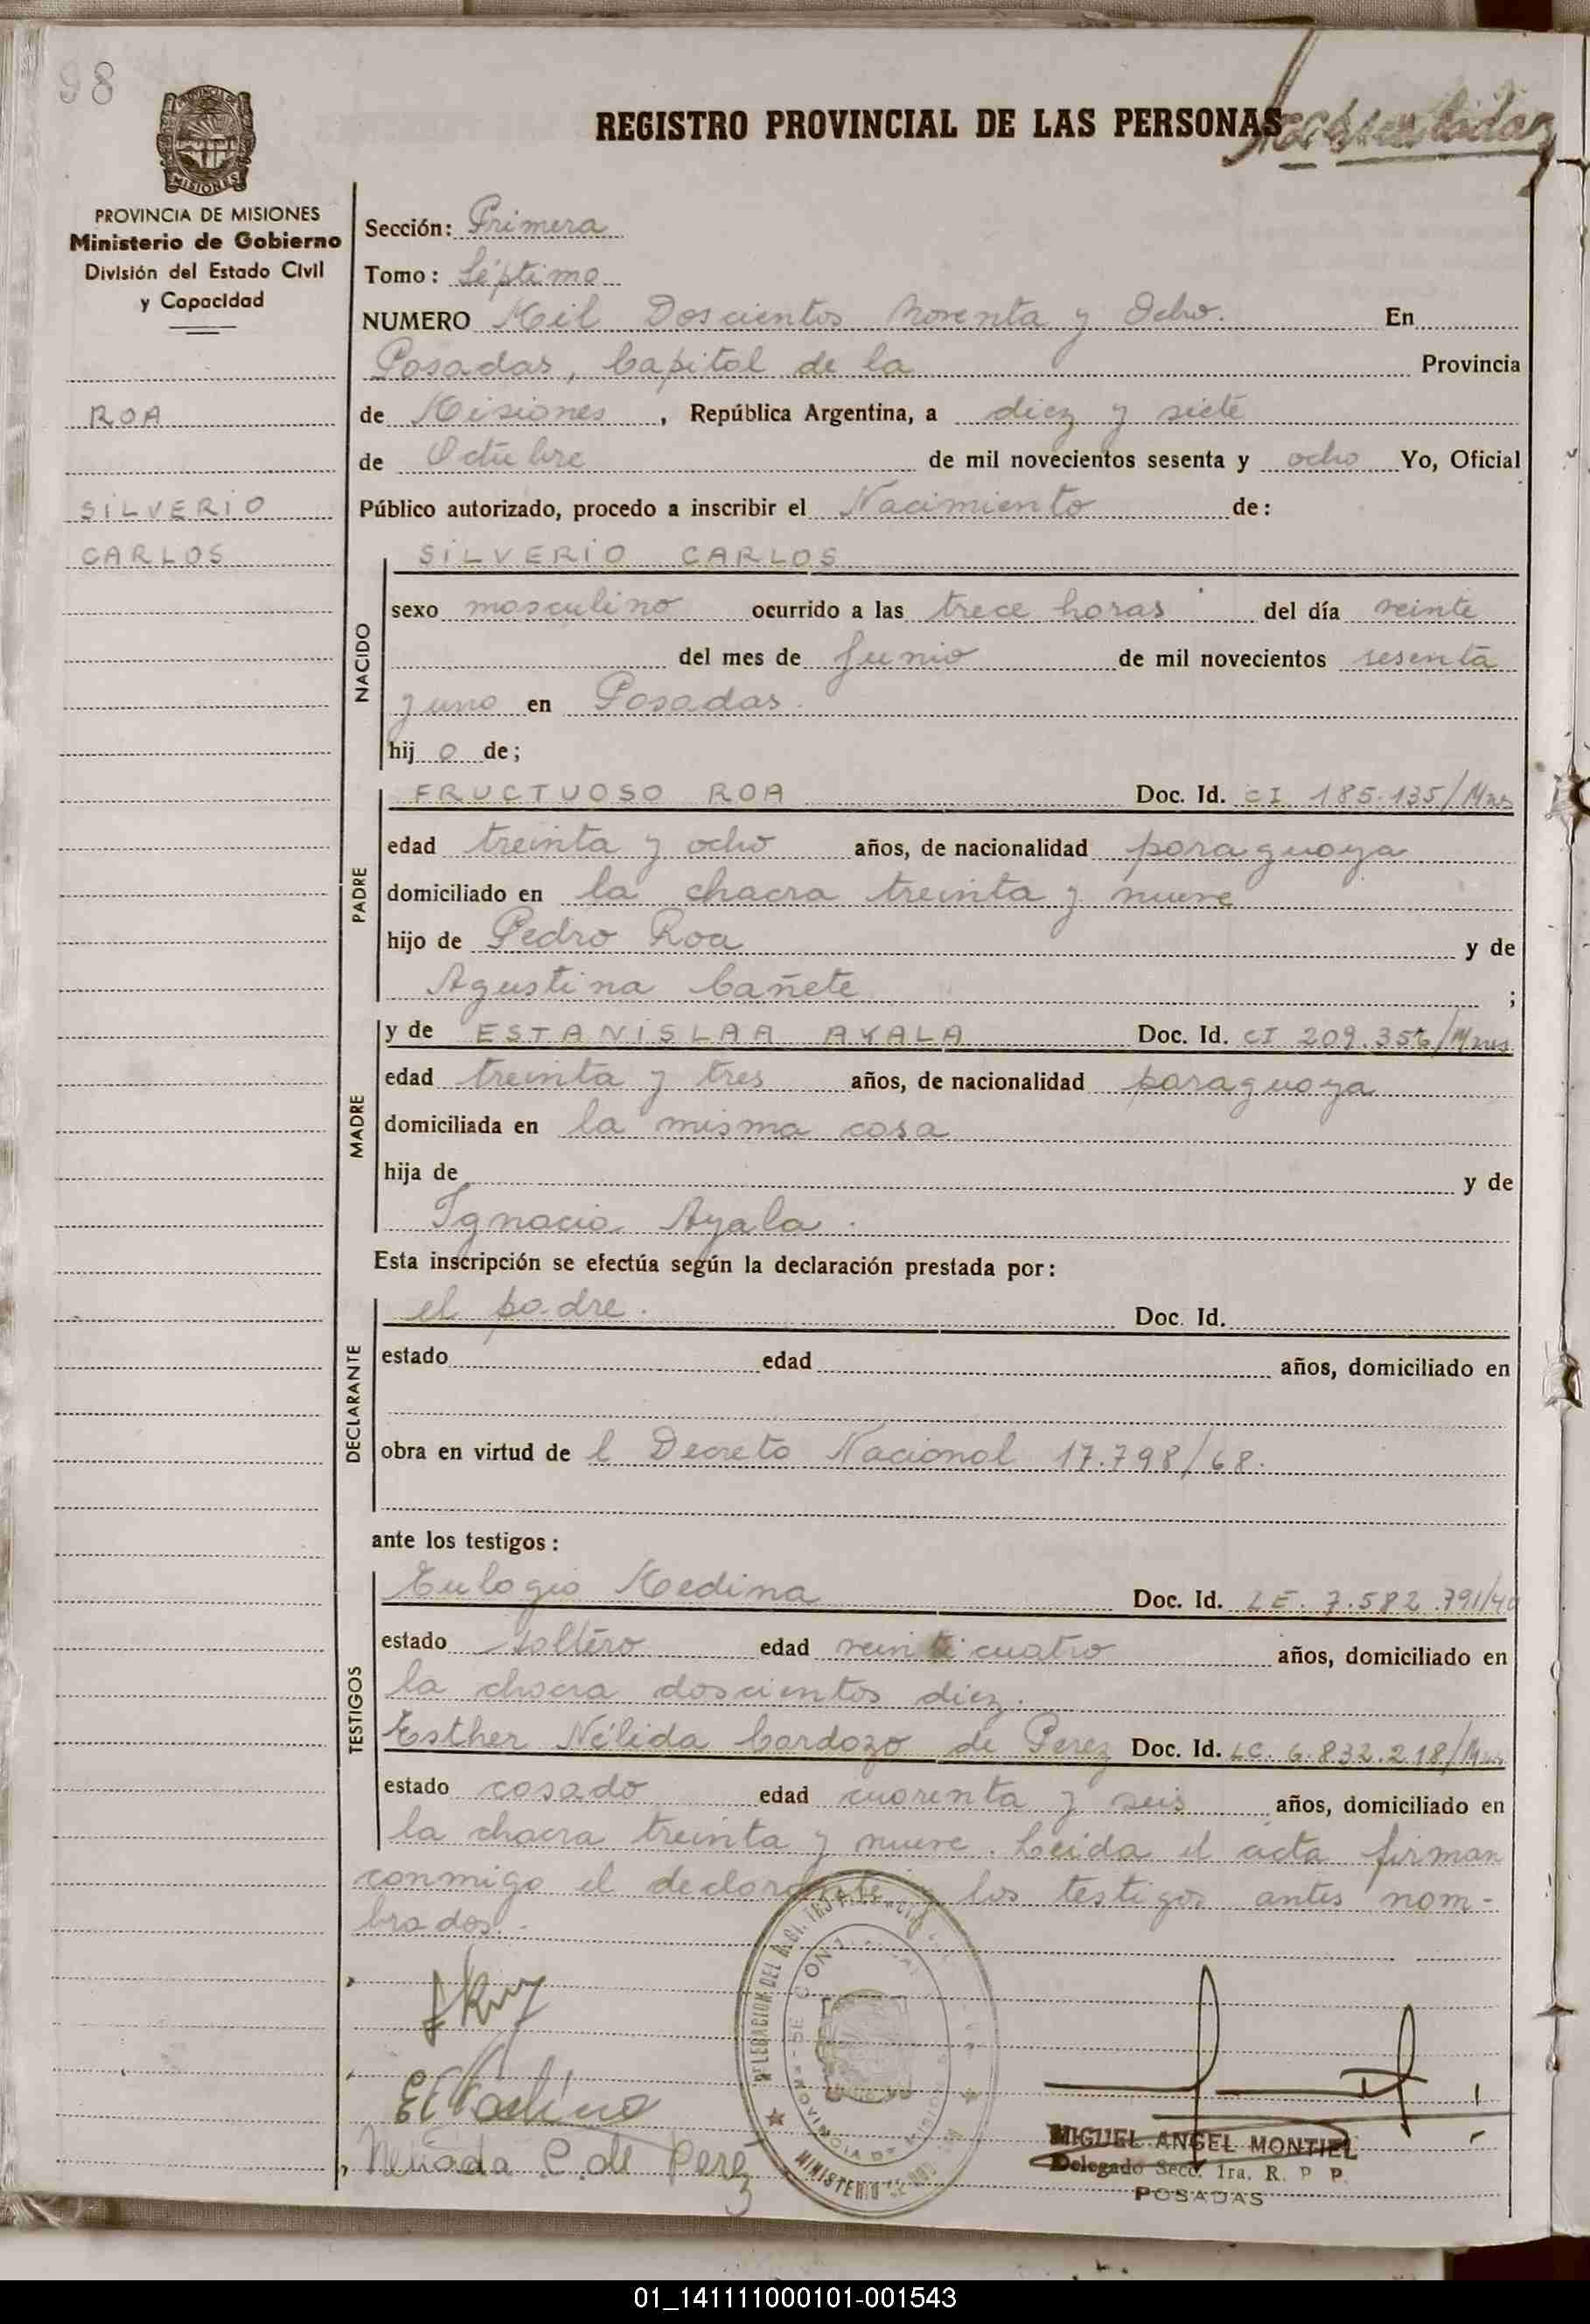 98
REGISTRO PROVINCIAL DE LAS PERSONAS
MISIONES
PROVINCIA DE MISIONES
Ministerio de Gobierno
División del Estado Civil
y Capacidad
ROA
SILVERIO
CARLOS
Sección: Primera
Tomo: Séptimo
NUMERO Mil Doscientos Noventa y Ocho. En
Posadas, Capital de la Provincia
de Misiones, República Argentina, a diez y siete
de Octubre de mil novecientos sesenta y ocho Yo, Oficial
Público autorizado, procedo a inscribir el Nacimiento de:
SILVERIO CARLOS
NACIDO
sexo masculino ocurrido a las trece horas del día veinte
del mes de Junio de mil novecientos sesenta
y uno en Posadas.
hij o de;
PADRE
FRUCTUOSO ROA Doc. Id. CI 185.135/Mns
edad treinta y ocho años, de nacionalidad paraguaya
domiciliado en la chacra treinta y nueve
hijo de Pedro Roa y de
Agustina Cañete ;
MADRE
y de ESTANISLAA AYALA Doc. Id. CI 209.356/Mnes
edad treinta y tres años, de nacionalidad paraguaya
domiciliada en la misma casa
hija de y de
Ignacia Ayala.
Esta inscripción se efectúa según la declaración prestada por:
DECLARANTE
el padre. Doc. Id.
estado edad años, domiciliado en
obra en virtud de l Decreto Nacional 17.798/68.
ante los testigos:
TESTIGOS
Eulogio Medina Doc. Id. LE. 7.582.791/40
estado soltero edad veinticuatro años, domiciliado en
la chacra doscientos diez.
Esther Nélida Cardozo de Perez Doc. Id. LC. 6.832.218/Mns
estado casado edad cuarenta y seis años, domiciliado en
la chacra treinta y nueve. Leida el acta firman
conmigo el declarante y los testigos antes nom-
brados.-
C. de Perez
MIGUEL ANGEL MONTIEL
Delegado Secc. 1ra. R. P P.
POSADAS
01_141111000101-001543